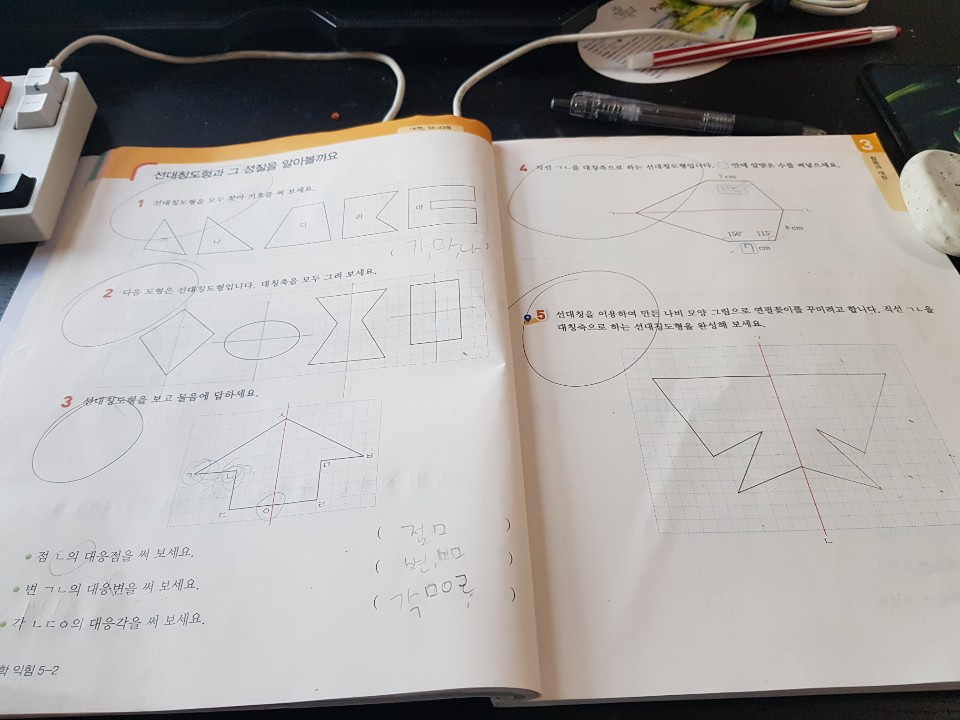 선대칭도형과 그 성질을 알아볼까요
1 선대칭도형을 모두 찾아 기호를 써 보세요.
가 나 다 라 마
2 다음 도형은 선대칭도형입니다. 대칭축을 모두 그려 보세요.
3 선대칭도형을 보고 물음에 답하세요.
ㅅ
ㄱ ㄴ ㅁ ㅂ
ㄷ ㅇ
점 ㄴ의 대응점을 써 보세요.
( 점ㅁ )
변 ㄱㄴ의 대응변을 써 보세요.
각 ㄴㄷㅇ의 대응각을 써 보세요.
학 익힘 5-2
3
4 직선 ㄱㄴ을 대칭축으로 하는 선대칭도형입니다. 안에 알맞은 수를 써넣으세요.
7 cm
8 cm
115°
7 cm
5 선대칭을 이용하여 만든 나비 모양 그림으로 연필꽂이를 꾸미려고 합니다. 직선 ㄱㄴ을
대칭축으로 하는 선대칭도형을 완성해 보세요.
ㄴ